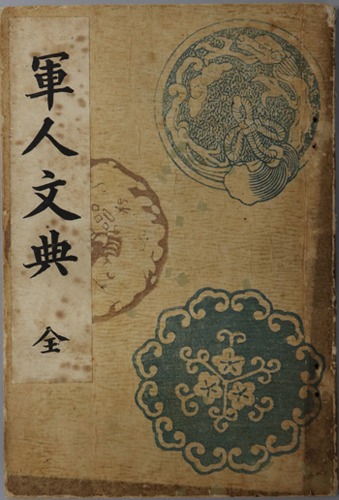 軍人文典
全